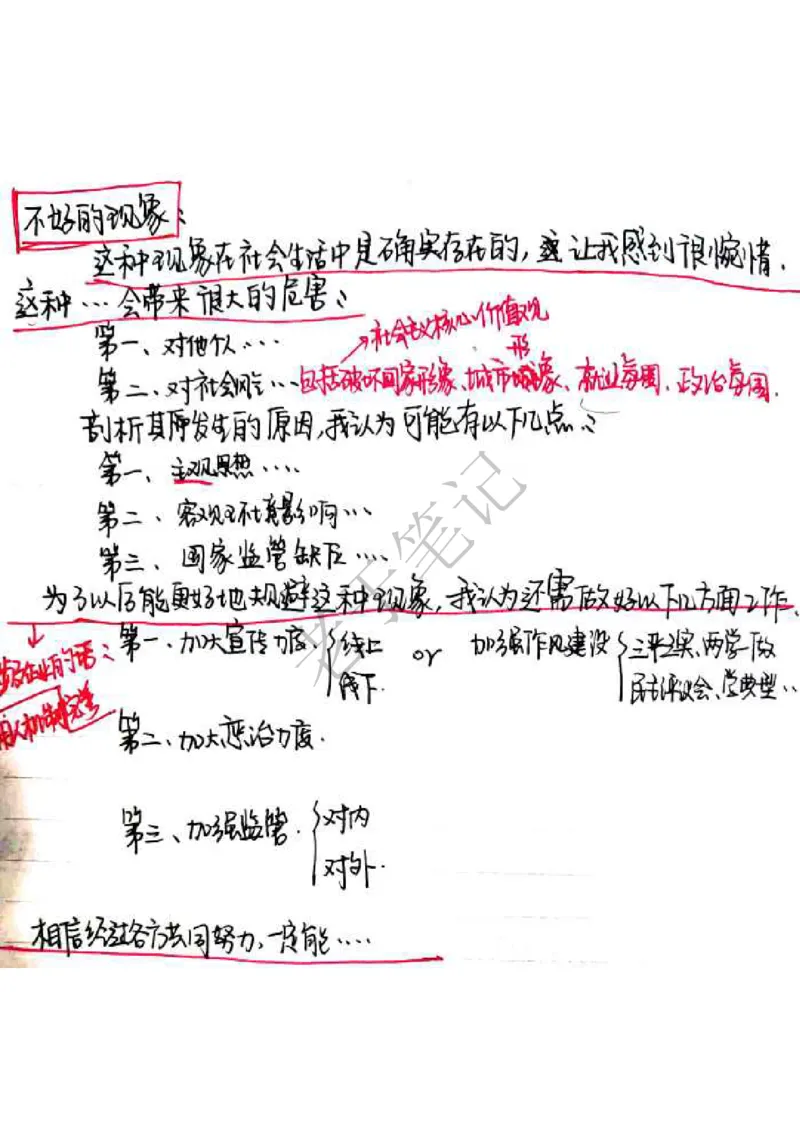 不好的现象：
这种现象在社会生活中是确实存在的，这让我感到很惋惜．
这种…会带来很大的危害：
社会主义核心价值观
第一、对他人…
形
第二、对社会风…包括破坏国家形象、城市象、就业氛围、政治氛围．
剖析其所发生的原因，我认为可能有以下几点：
第一、主观思想…
第二、客观环境影响…
第三、国家监管缺乏…
为了以后能更好地规避这种现象，我认为还需做好以下几方面工作．
第一、加大宣传力度．线上 or 加强作风建设 三严三实、两学一做
线下． 民主评议会、学典型…
第二、加大惩治力度．
第三、加强监管．对内
对外．
相信经过各方共同努力，一定能…
老于笔记